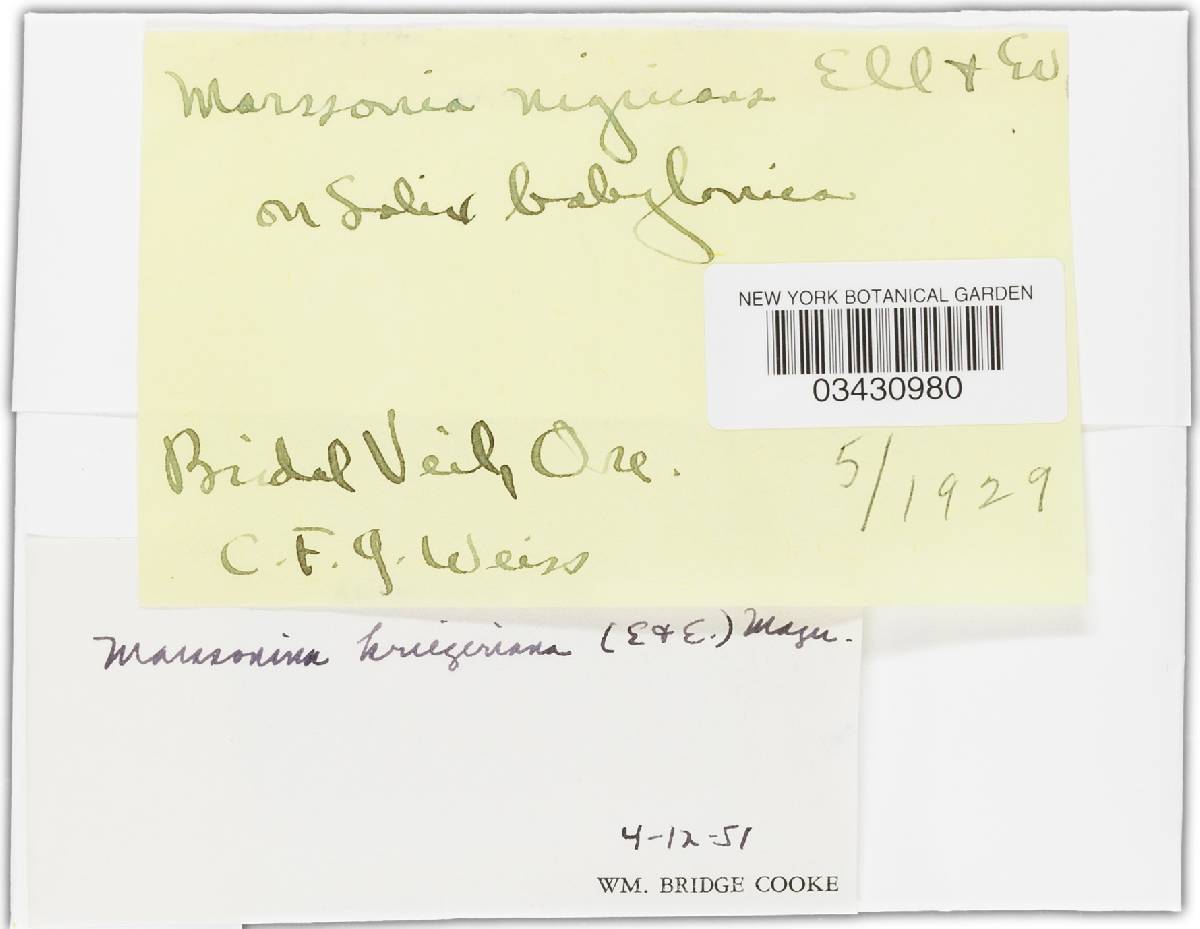 Marssonia nigricans Ell & Ev
on Salix babylonica
NEW YORK BOTANICAL GARDEN
03430980
Bridal Veil, Ore.
5/1929
C. F. J. Weiss
Marssonina kriegeriana (E & E.) Magn.
4-12-51
WM. BRIDGE COOKE